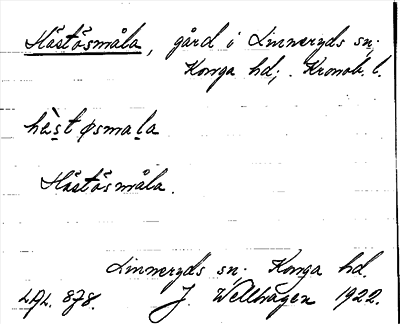 Hästösmåla, gård i Linneryds sn;
Konga hd; Kronob. l.
hàst øsmala
Hästösmåla.
Linneryds sn; Konga hd.
LAL. 878. J. Wellhagen 1922.